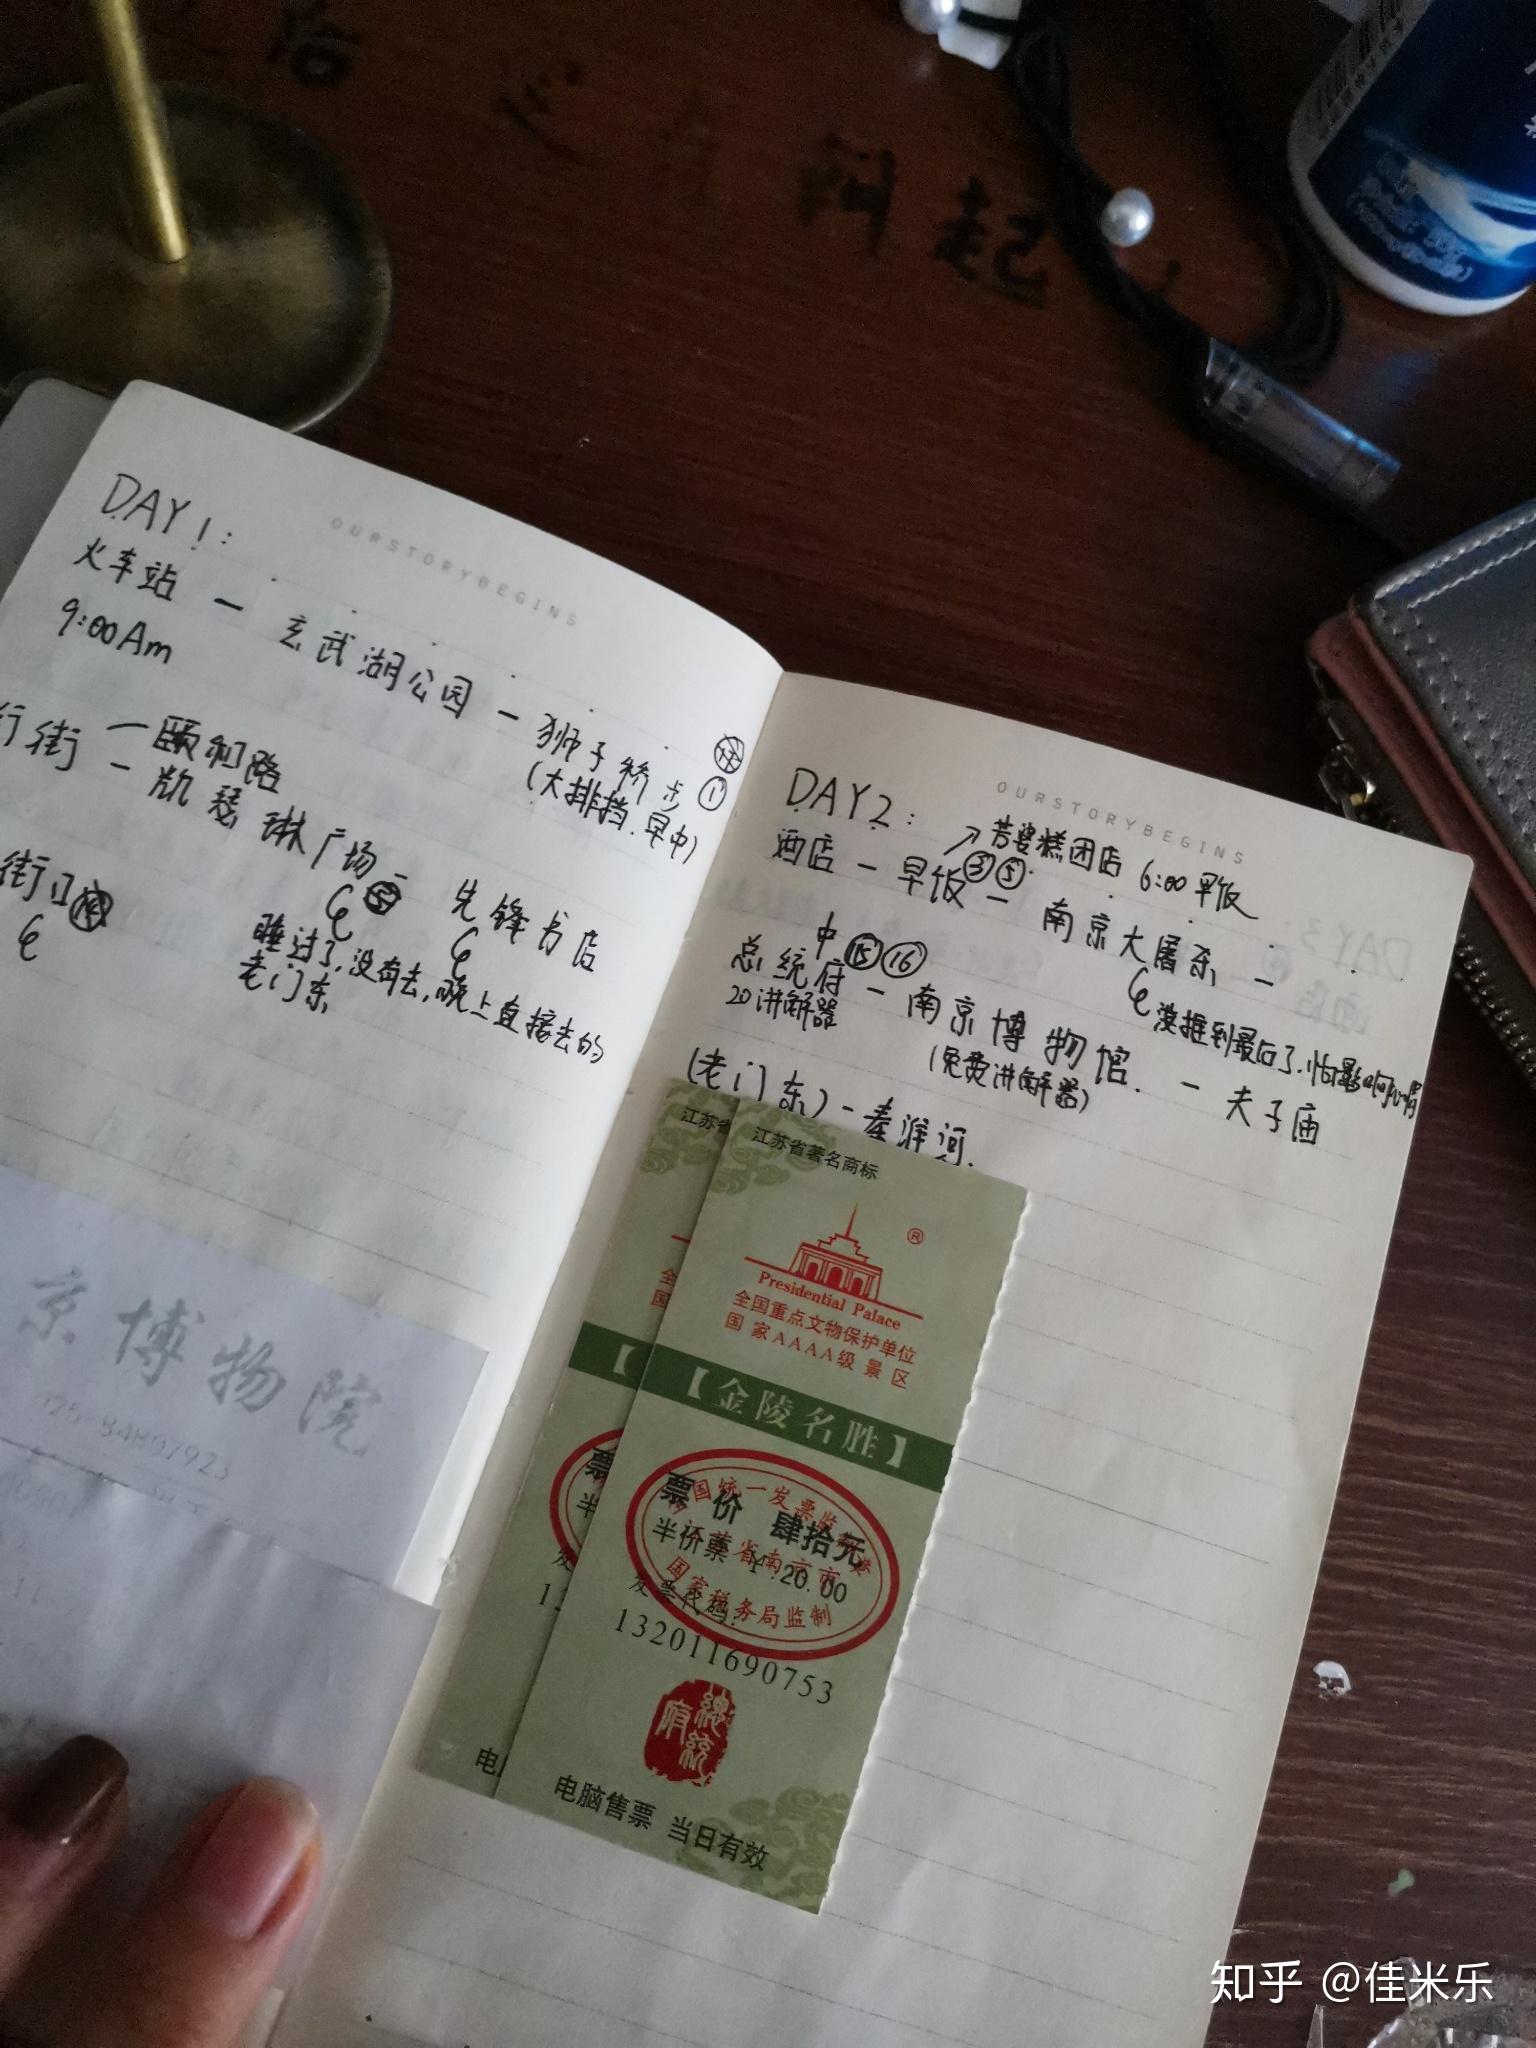 问起
OURSTORYBEGINS
DAY 1:
火车站 — 玄武湖公园 — 狮子桥步
9:00Am
(大排挡.早中)
①
行街 — 颐和路
— 凯瑟琳广场 — 先锋书店
街口
睡过了,没有去,晚上直接去的
老门东
京博物院
025-84807923
OURSTORYBEGINS
DAY 2:
芳婆糕团店 6:00早饭
酒店 — 早饭③⑤ — 南京大屠杀 —
没推到最后了.怕影响心情
中⑮⑯
总统府 — 南京博物馆. — 夫子庙
20讲解器
(免费讲解器)
(老门东) - 秦淮河.
江苏省著名商标
®
Presidential Palace
全国重点文物保护单位
国家AAAA级景区
【金陵名胜】
票价 肆拾元
半价票 ¥:20.00
发票代码:
国家税务局监制
132011690753
总统府
电脑售票 当日有效
知乎 @佳米乐